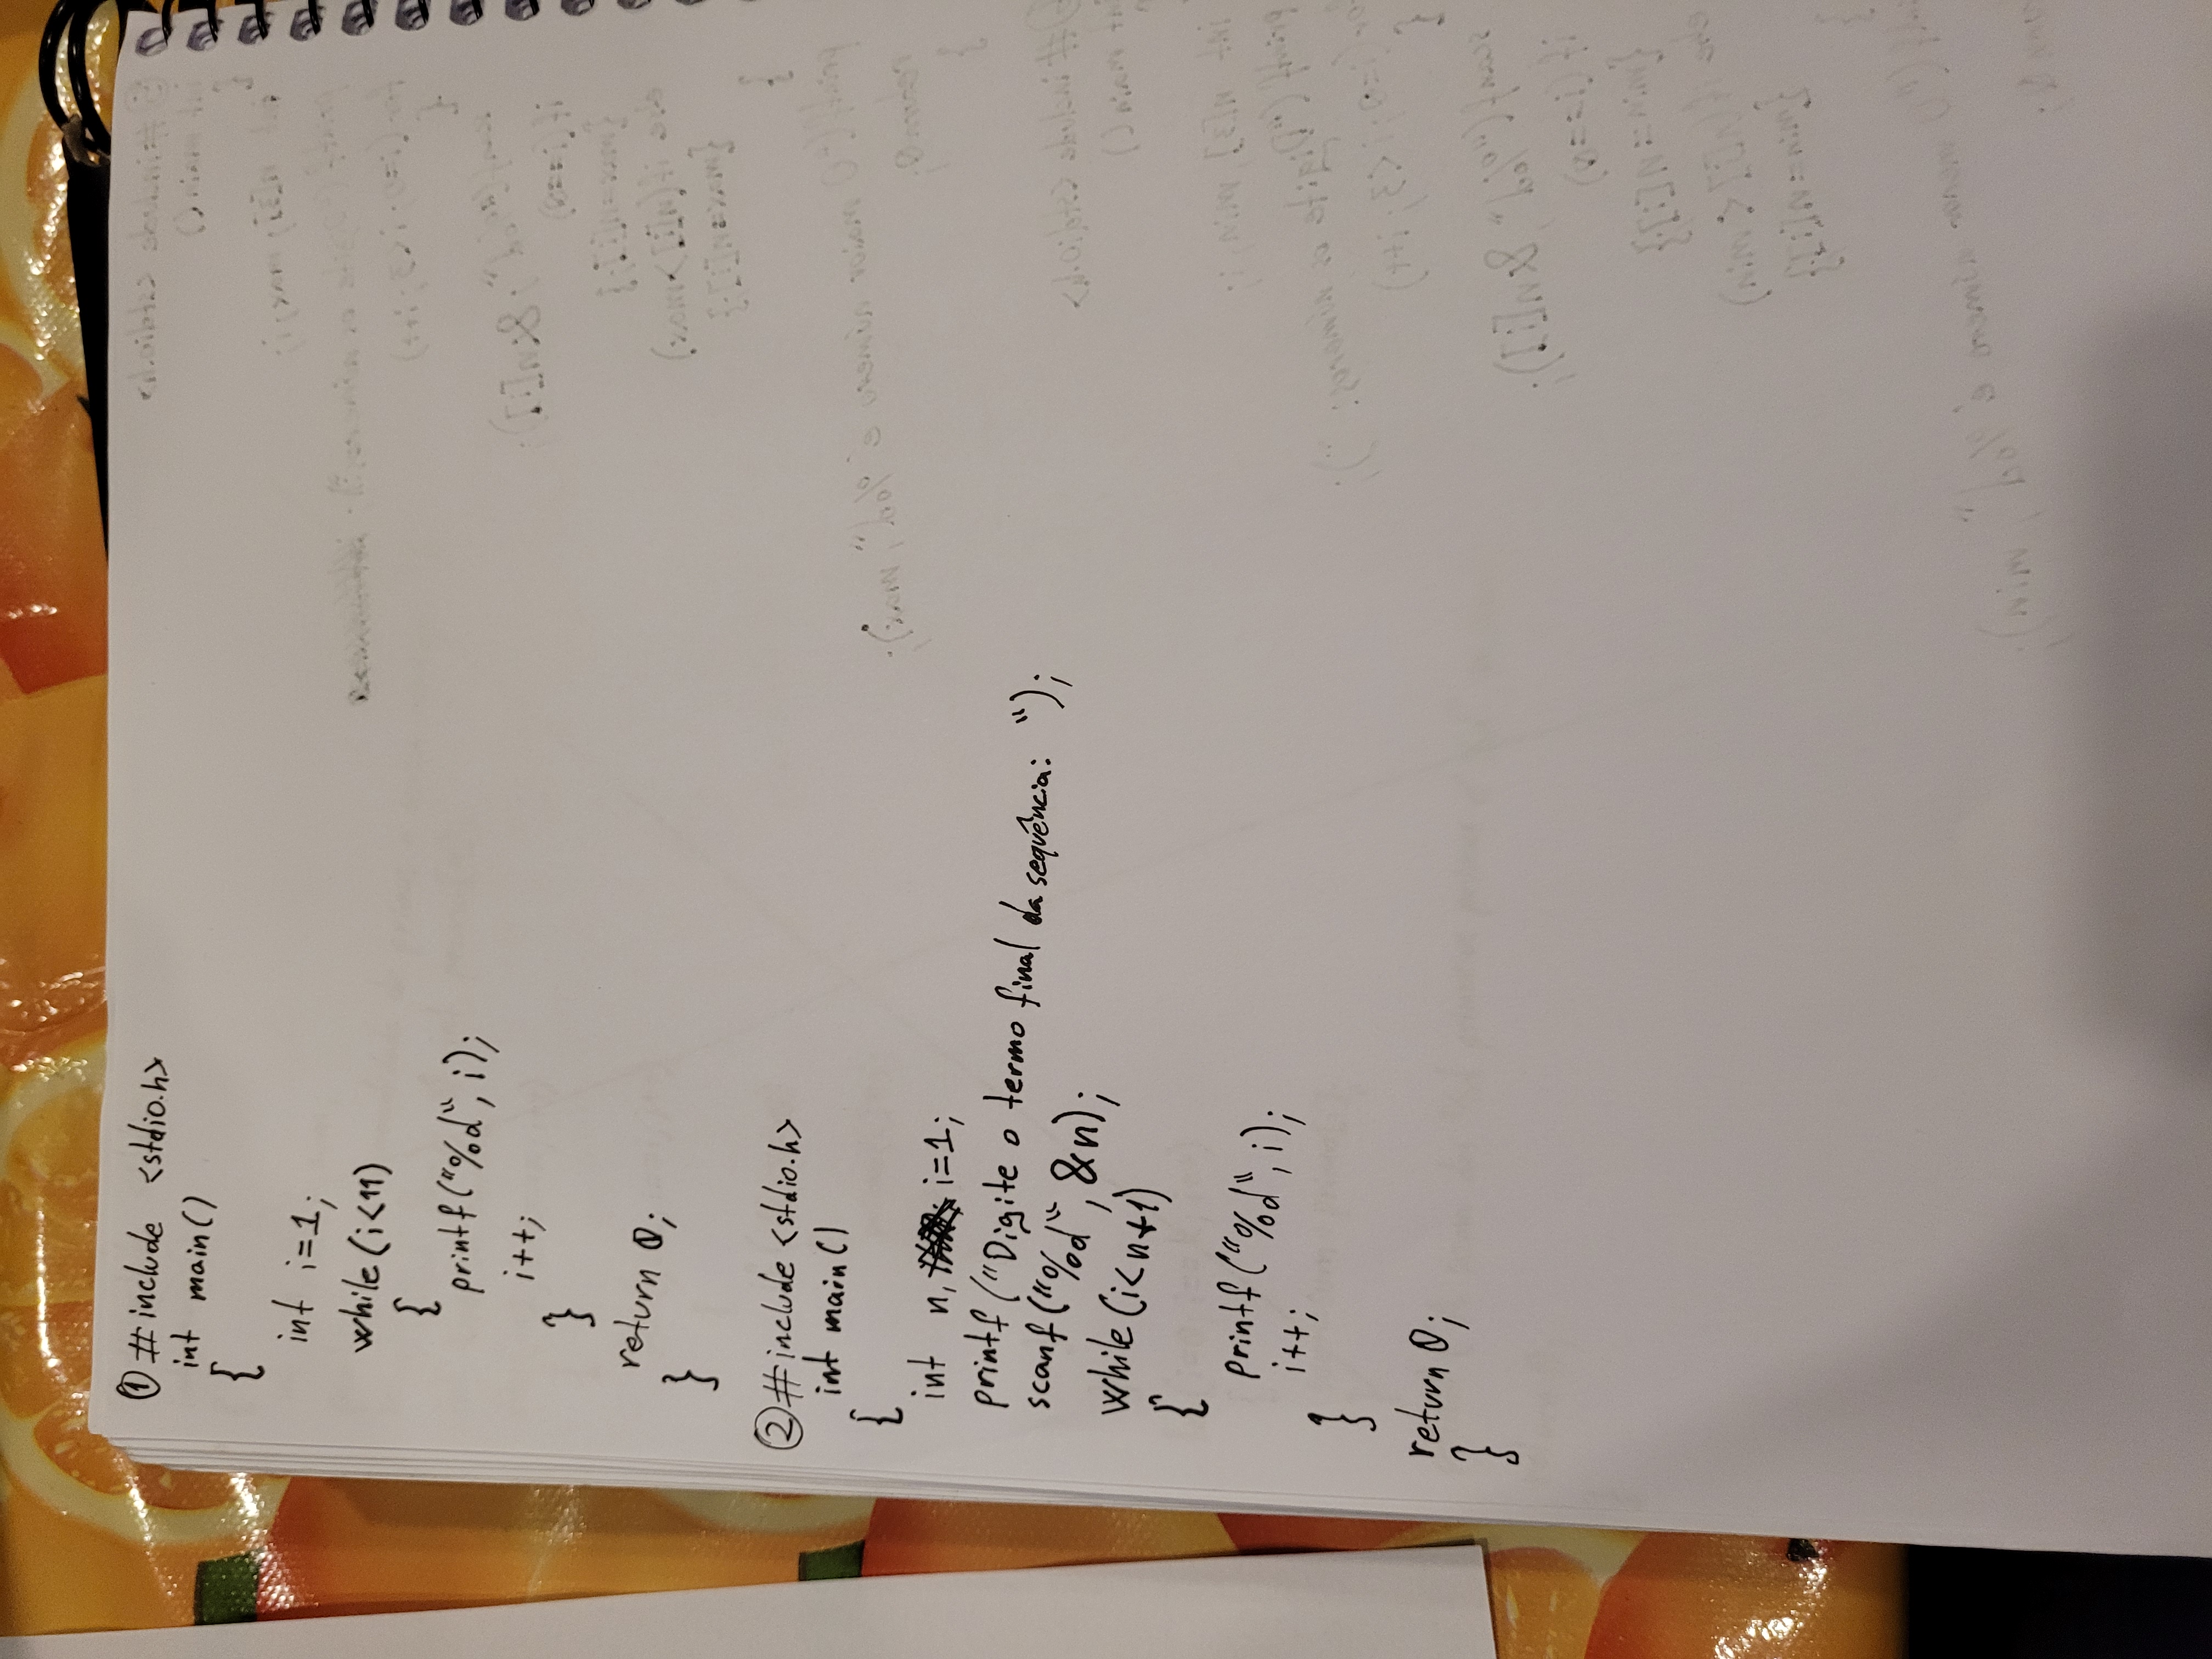 ① #include <stdio.h>
int main()
{
int i=1;
while(i<11)
{
printf("%d", i);
i++;
}
return 0;
}
② #include <stdio.h>
int main()
{
int n, i=1;
printf("Digite o termo final da sequência: ");
scanf("%d", &n);
while(i<n+1)
{
printf("%d", i);
i++;
}
return 0;
}